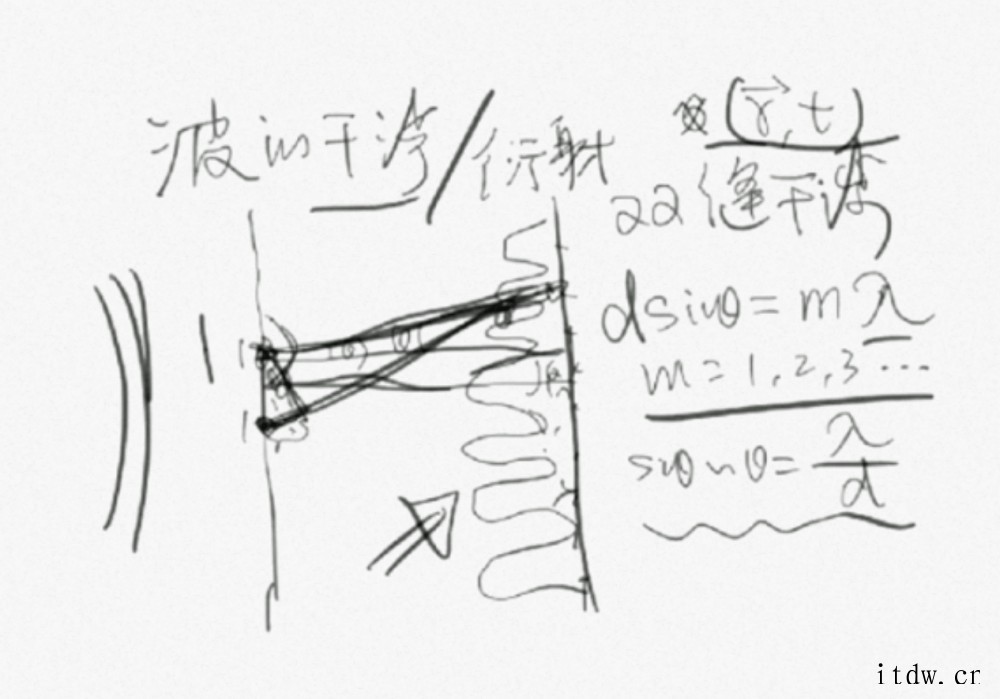 波的干涉/衍射
(r⃗, t)
缝干涉
dsinθ = mλ
m = 1, 2, 3 ...
θ = λ/d
itdw.cn